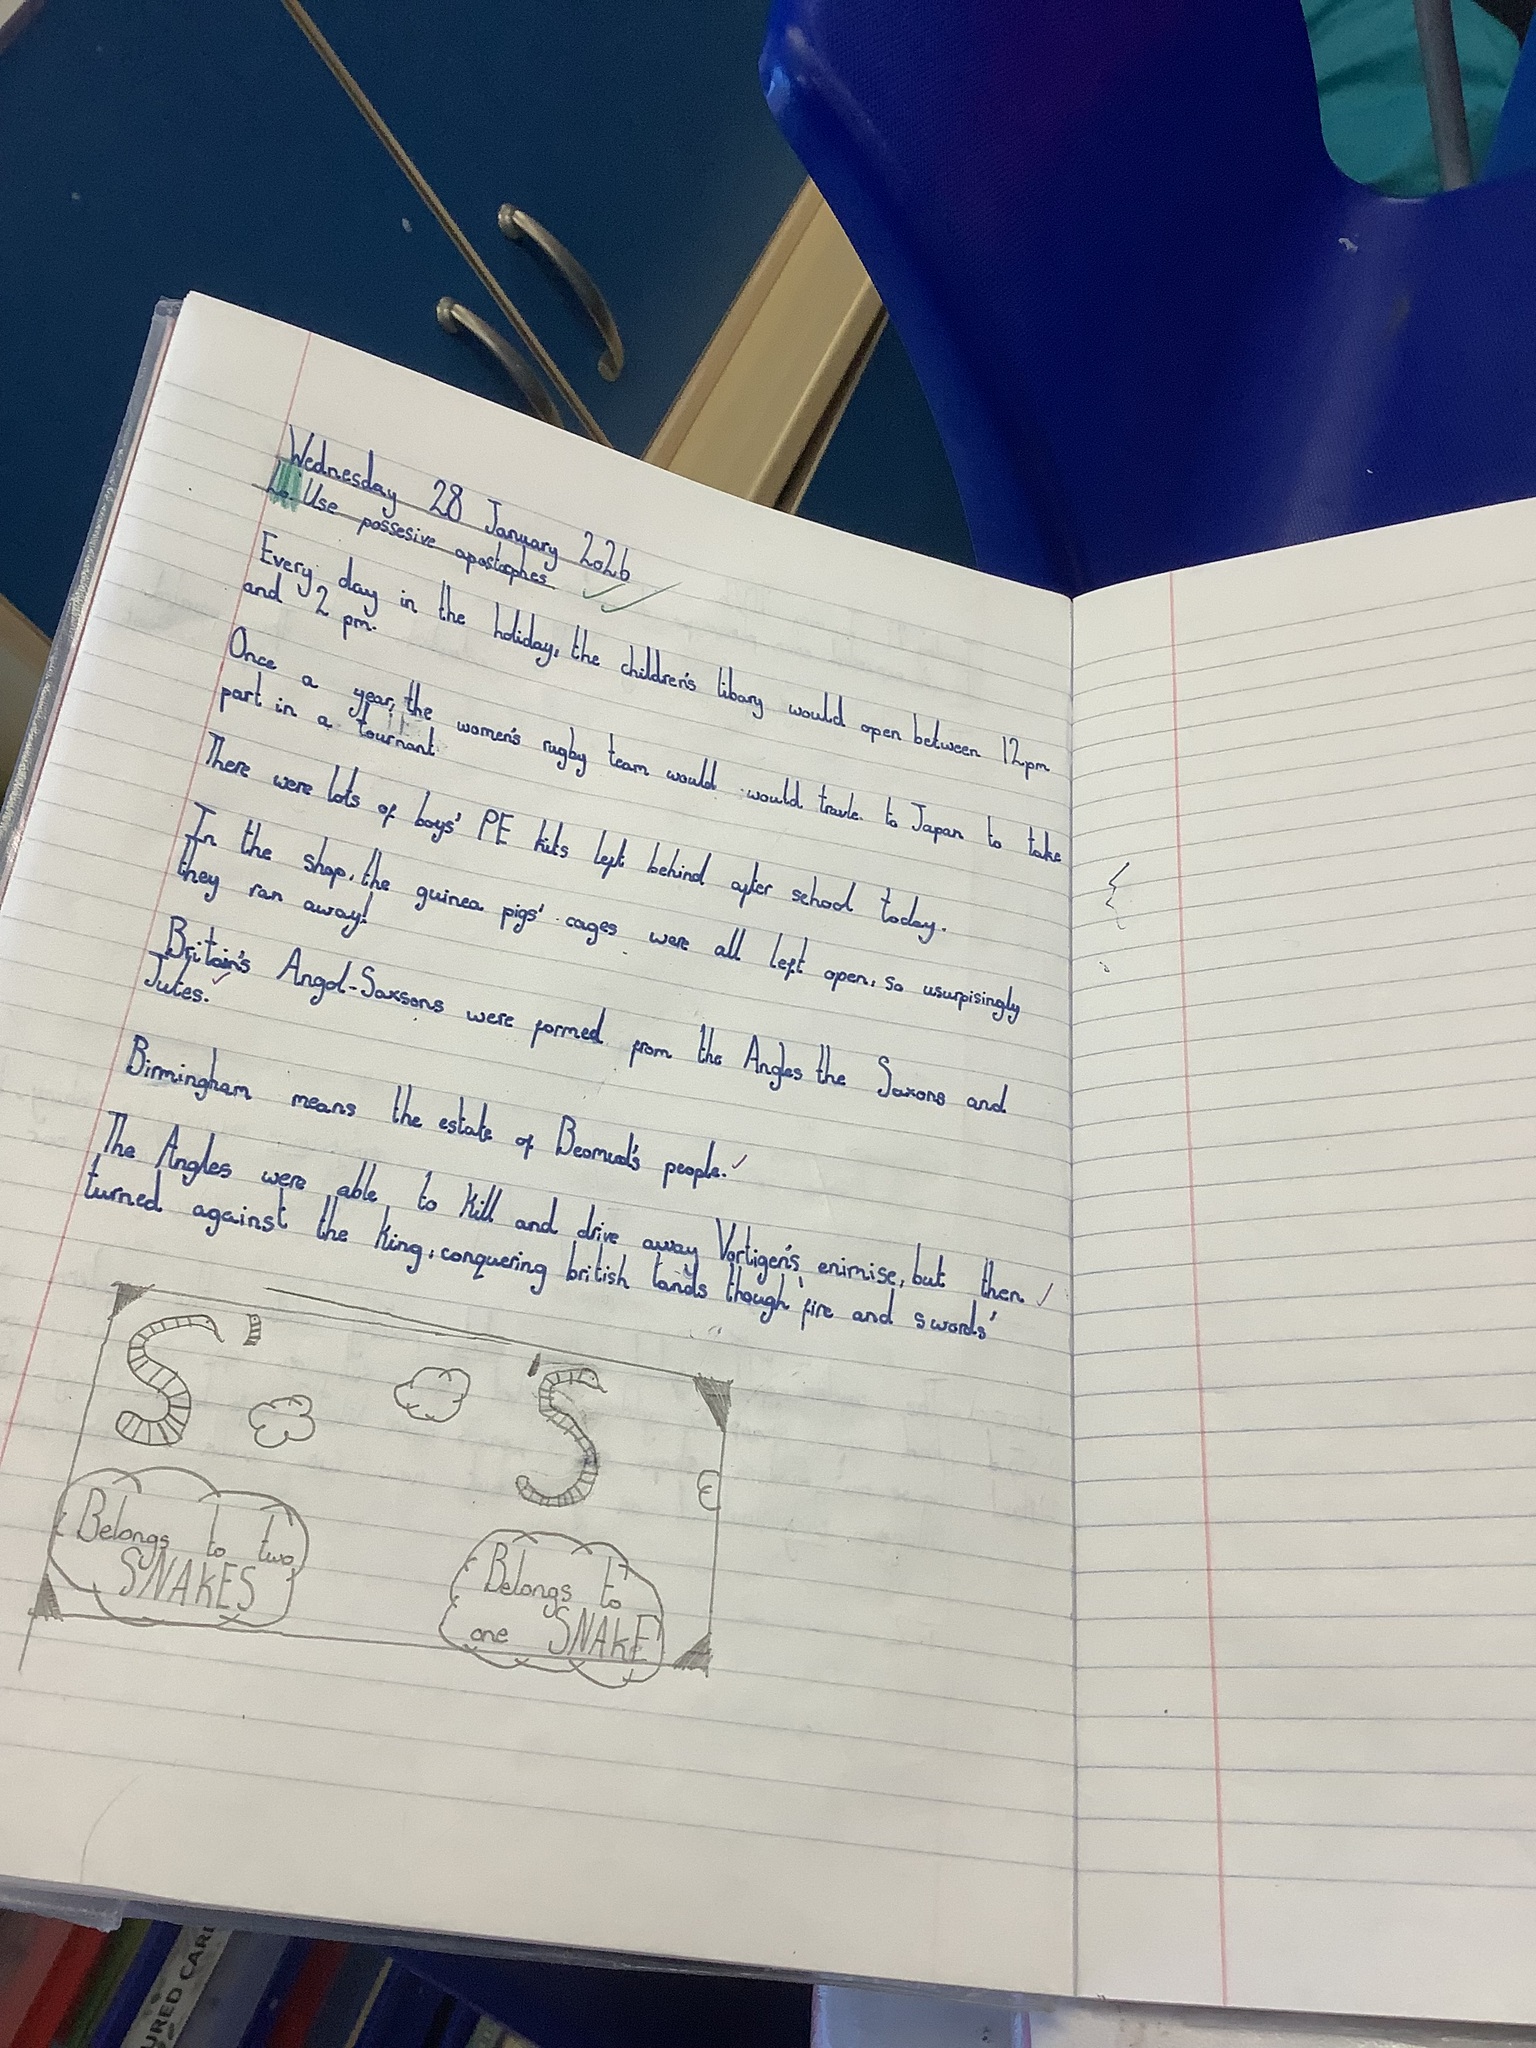 Wednesday 28 January 2026
Lo: Use possesive apostophes
Every day in the holiday, the children's libary would open between 12pm
and 2 pm.
Once a year, the women's rugby team would would travle to Japan to take
part in a tournant
There were lots of boys' PE kits left behind after school today.
In the shop, the guinea pigs' cages were all left open, so usurpisingly
they ran away!
Britain's Angol-Saxsons were formed from the Angles the Saxons and
Jutes.
Birmingham means the estate of Beomud's people.
The Angles were able to kill and drive away Vortigen's enimise, but then
turned against the king, conquering british lands though 'fire and swords'
S' 'S
Belongs to two
SNAKES
Belongs to
one SNAKE
URED CARD